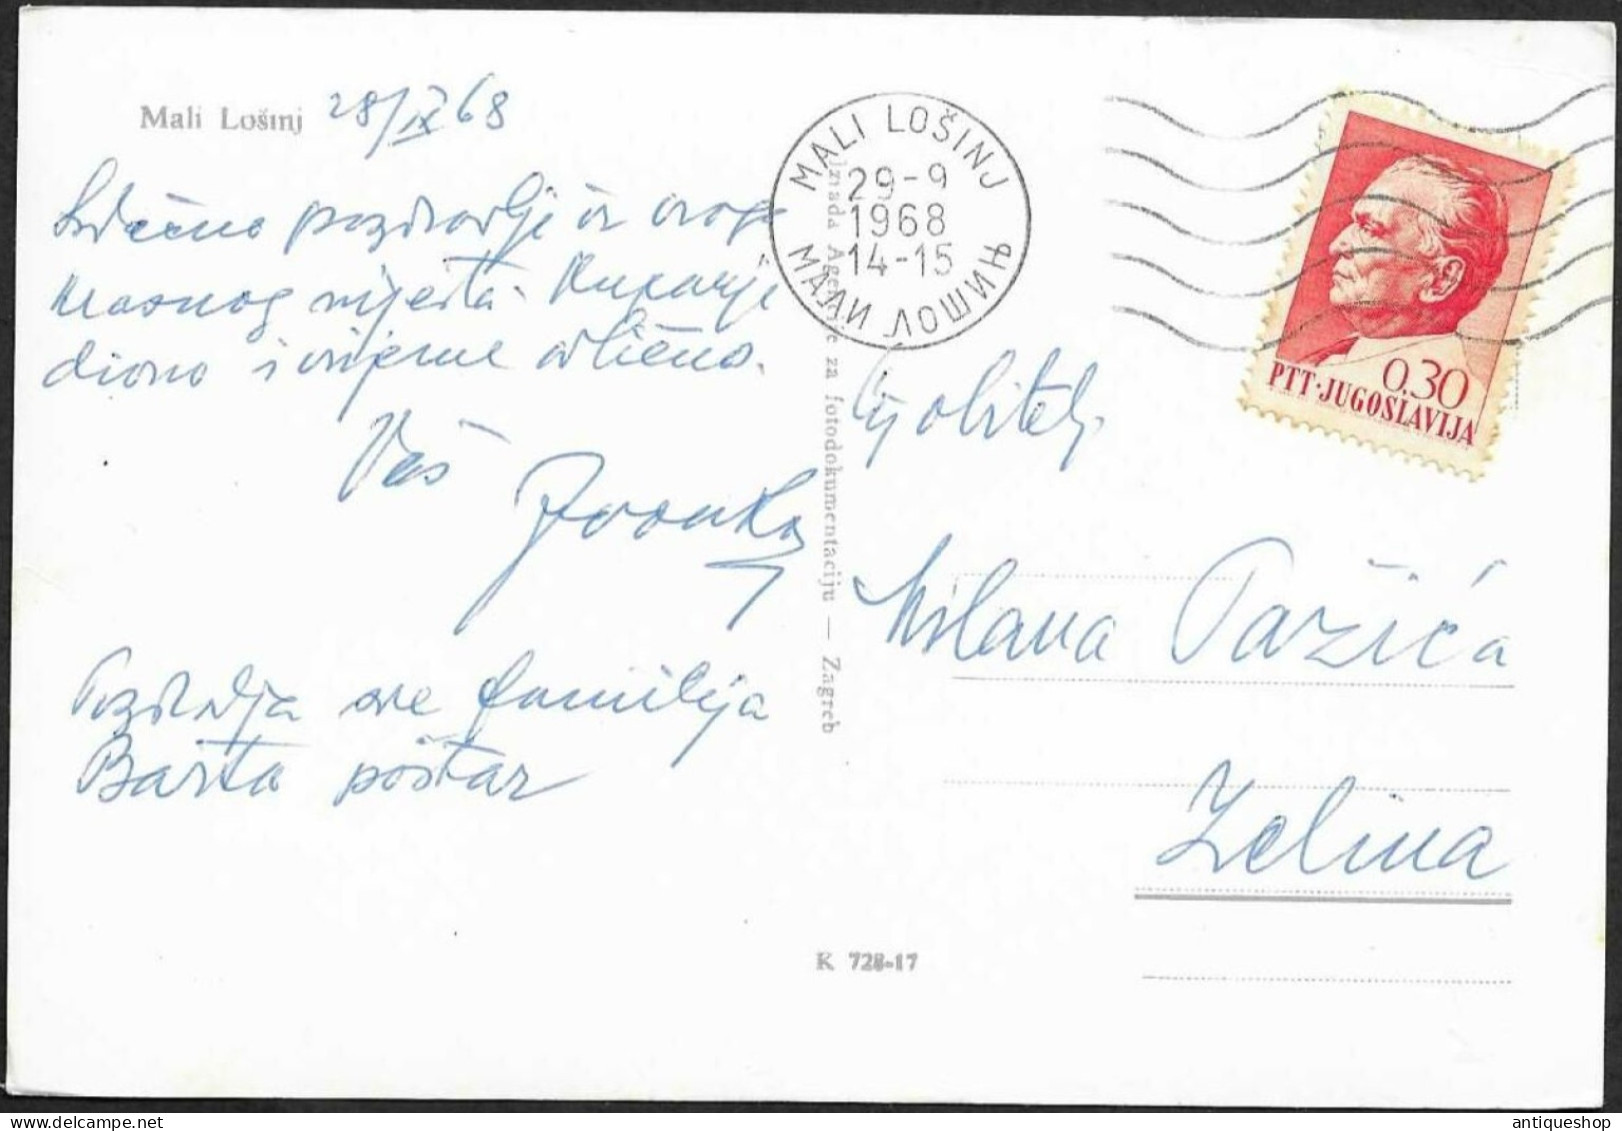 Mali Lošinj 28/IX 68
Srdačno pozdravlje iz ovog
krasnog mjesta. Kupanje
divno i vrijeme odlično.
Vaš
Zvonko
Pozdravlja sve familija
Barta poštar
MALI LOŠINJ
29-9
1968
14-15
МАЛИ ЛОШИЊ
0.30
PTT·JUGOSLAVIJA
Obitelj
Milana Pažića
Zelina
za fotodokumentaciju — Zagreb
K 728-17
antiqueshop